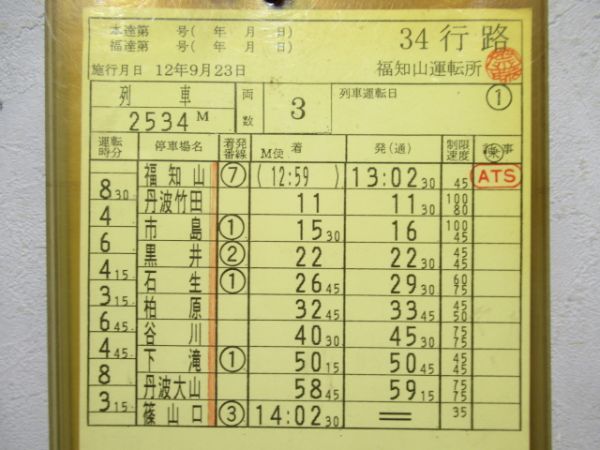 本達第 号( 年 月 日)
福達第 号( 年 月 日)
34行路
施行月日 12年9月23日
福知山運転所
列車 両数 3 列車運転日 ①
2534M
運転時分 停車場名 着発番線 M使 着 発(通) 制限速度 事
福知山 ⑦ (12:59 ) 13:02 30 45 ATS
8 30
丹波竹田 11 11 30 100 80
4
市島 ① 15 30 16 100 45
6
黒井 ② 22 22 30 45 45
4 15
石生 ① 26 45 29 30 60 75
3 15
柏原 32 45 33 45 45 50
6 45
谷川 40 30 45 30 75 75
4 45
下滝 ① 50 15 50 45 45 45
8
丹波大山 58 45 59 15 75 75
3 15
篠山口 ③ 14:02 30 = 35